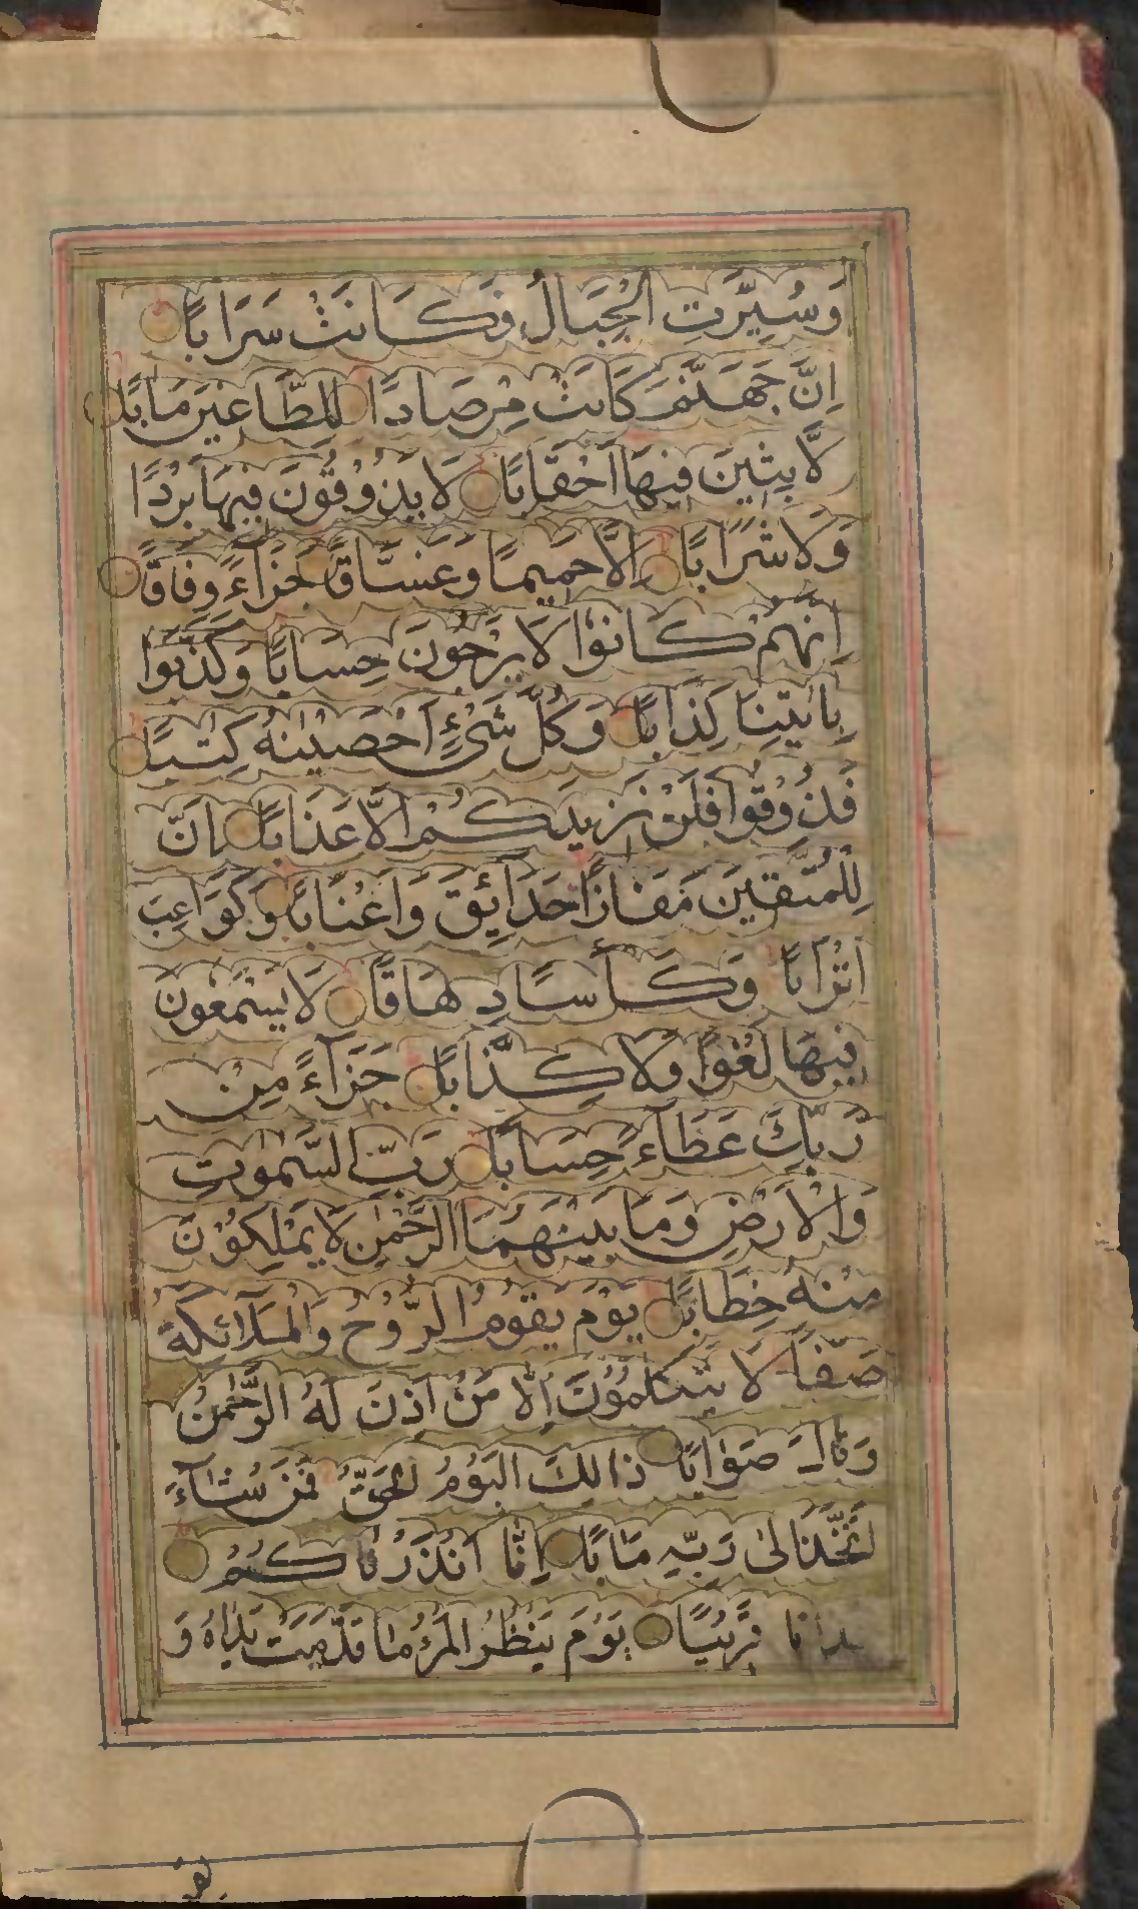 وَسُيِّرَتِ الْجِبَالُ فَكَانَتْ سَرَابًا
اِنَّ جَهَنَّمَ كَانَتْ مِرْصَادًا لِلطَّاغِينَ مَاٰبًا
لَّابِثِينَ فِيهَا اَحْقَابًا لَا يَذُوْقُوْنَ فِيهَا بَرْدًا
وَلَا شَرَابًا اِلَّا حَمِيمًا وَغَسَّاقًا جَزَاءً وِفَاقًا
اِنَّهُمْ كَانُوْا لَا يَرْجُونَ حِسَابًا وَكَذَّبُوْا
بِاٰيٰتِنَا كِذَّابًا وَكُلَّ شَيْءٍ اَحْصَيْنٰهُ كِتٰبًا
فَذُوْقُوْا فَلَنْ نَزِيدَكُمْ اِلَّا عَذَابًا اِنَّ
لِلْمُتَّقِينَ مَفَازًا حَدَآئِقَ وَاَعْنَابًا وَكَوَاعِبَ
اَتْرَابًا وَكَأْسًا دِهَاقًا لَا يَسْمَعُونَ
فِيهَا لَغْوًا وَلَا كِذَّابًا جَزَآءً مِنْ
رَّبِّكَ عَطَآءً حِسَابًا رَبِّ السَّمٰوٰتِ
وَالْاَرْضِ وَمَا بَيْنَهُمَا الرَّحْمٰنِ لَا يَمْلِكُوْنَ
مِنْهُ خِطَابًا يَوْمَ يَقُومُ الرُّوْحُ وَالْمَلَآئِكَةُ
صَفًّا لَا يَتَكَلَّمُوْنَ اِلَّا مَنْ اَذِنَ لَهُ الرَّحْمٰنُ
وَقَالَ صَوَابًا ذَالِكَ الْيَوْمُ الْحَقُّ فَمَنْ شَآءَ
اتَّخَذَ اِلٰى رَبِّهٖ مَاٰبًا اِنَّا اَنْذَرْنَاكُمْ
عذابا قَرِيْبًا يَوْمَ يَنْظُرُ الْمَرْءُ مَا قَدَّمَتْ يَدَاهُ وَ
يقو